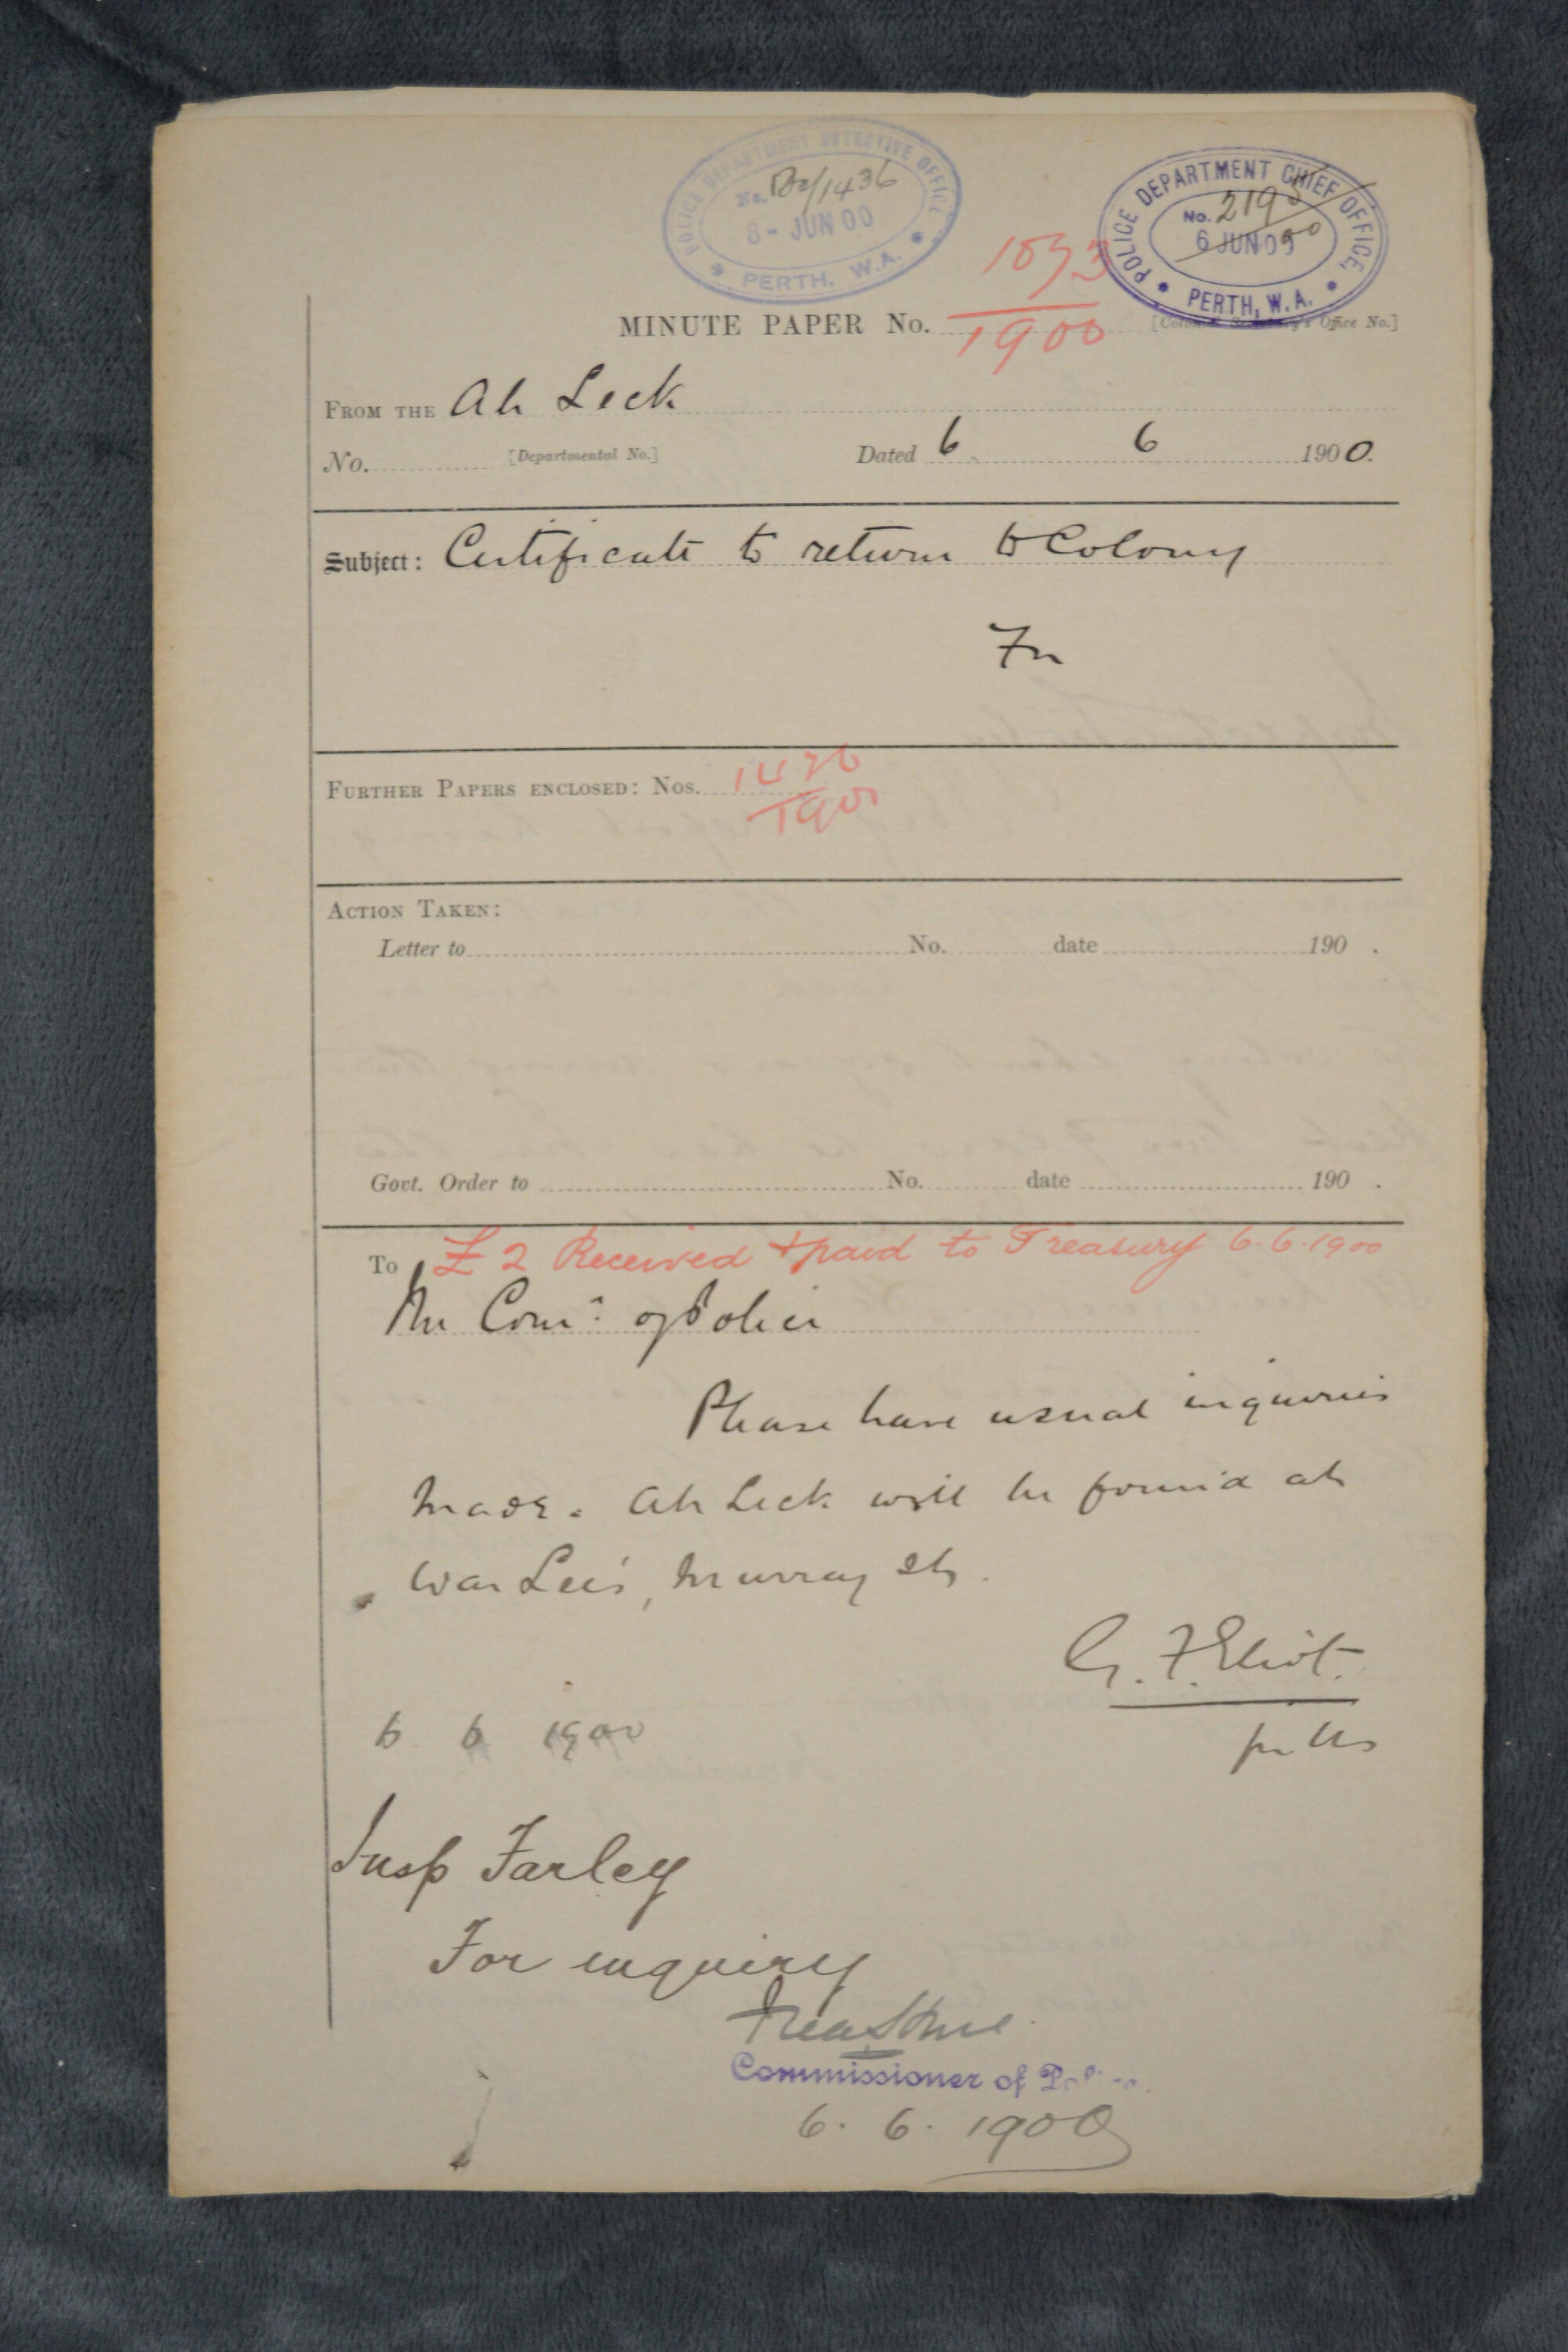 POLICE DEPARTMENT DETECTIVE OFFICE
No. 1436
8 - JUN 00
PERTH, W.A.
POLICE DEPARTMENT CHIEF OFFICE,
No. 2195
6 JUN 00
PERTH, W.A.
MINUTE PAPER No. 1893/1900 [Colonial Secretary's Office No.]
FROM THE Ah Leck
No. [Departmental No.] Dated 6 6 1900.
Subject: Certificate to return to Colony
FURTHER PAPERS ENCLOSED: Nos.
ACTION TAKEN:
Letter to No. date 190 .
Govt. Order to No. date 190 .
To £2 Received & paid to Treasury 6.6.1900
The Comr. of Police
Please have usual inquiries
made. Ah Leck will be found at
War Lee's, Murray St.
G. F. Eliot.
6 6 1900
Insp Farley
For inquiry
Commissioner of Police.
6. 6. 1900